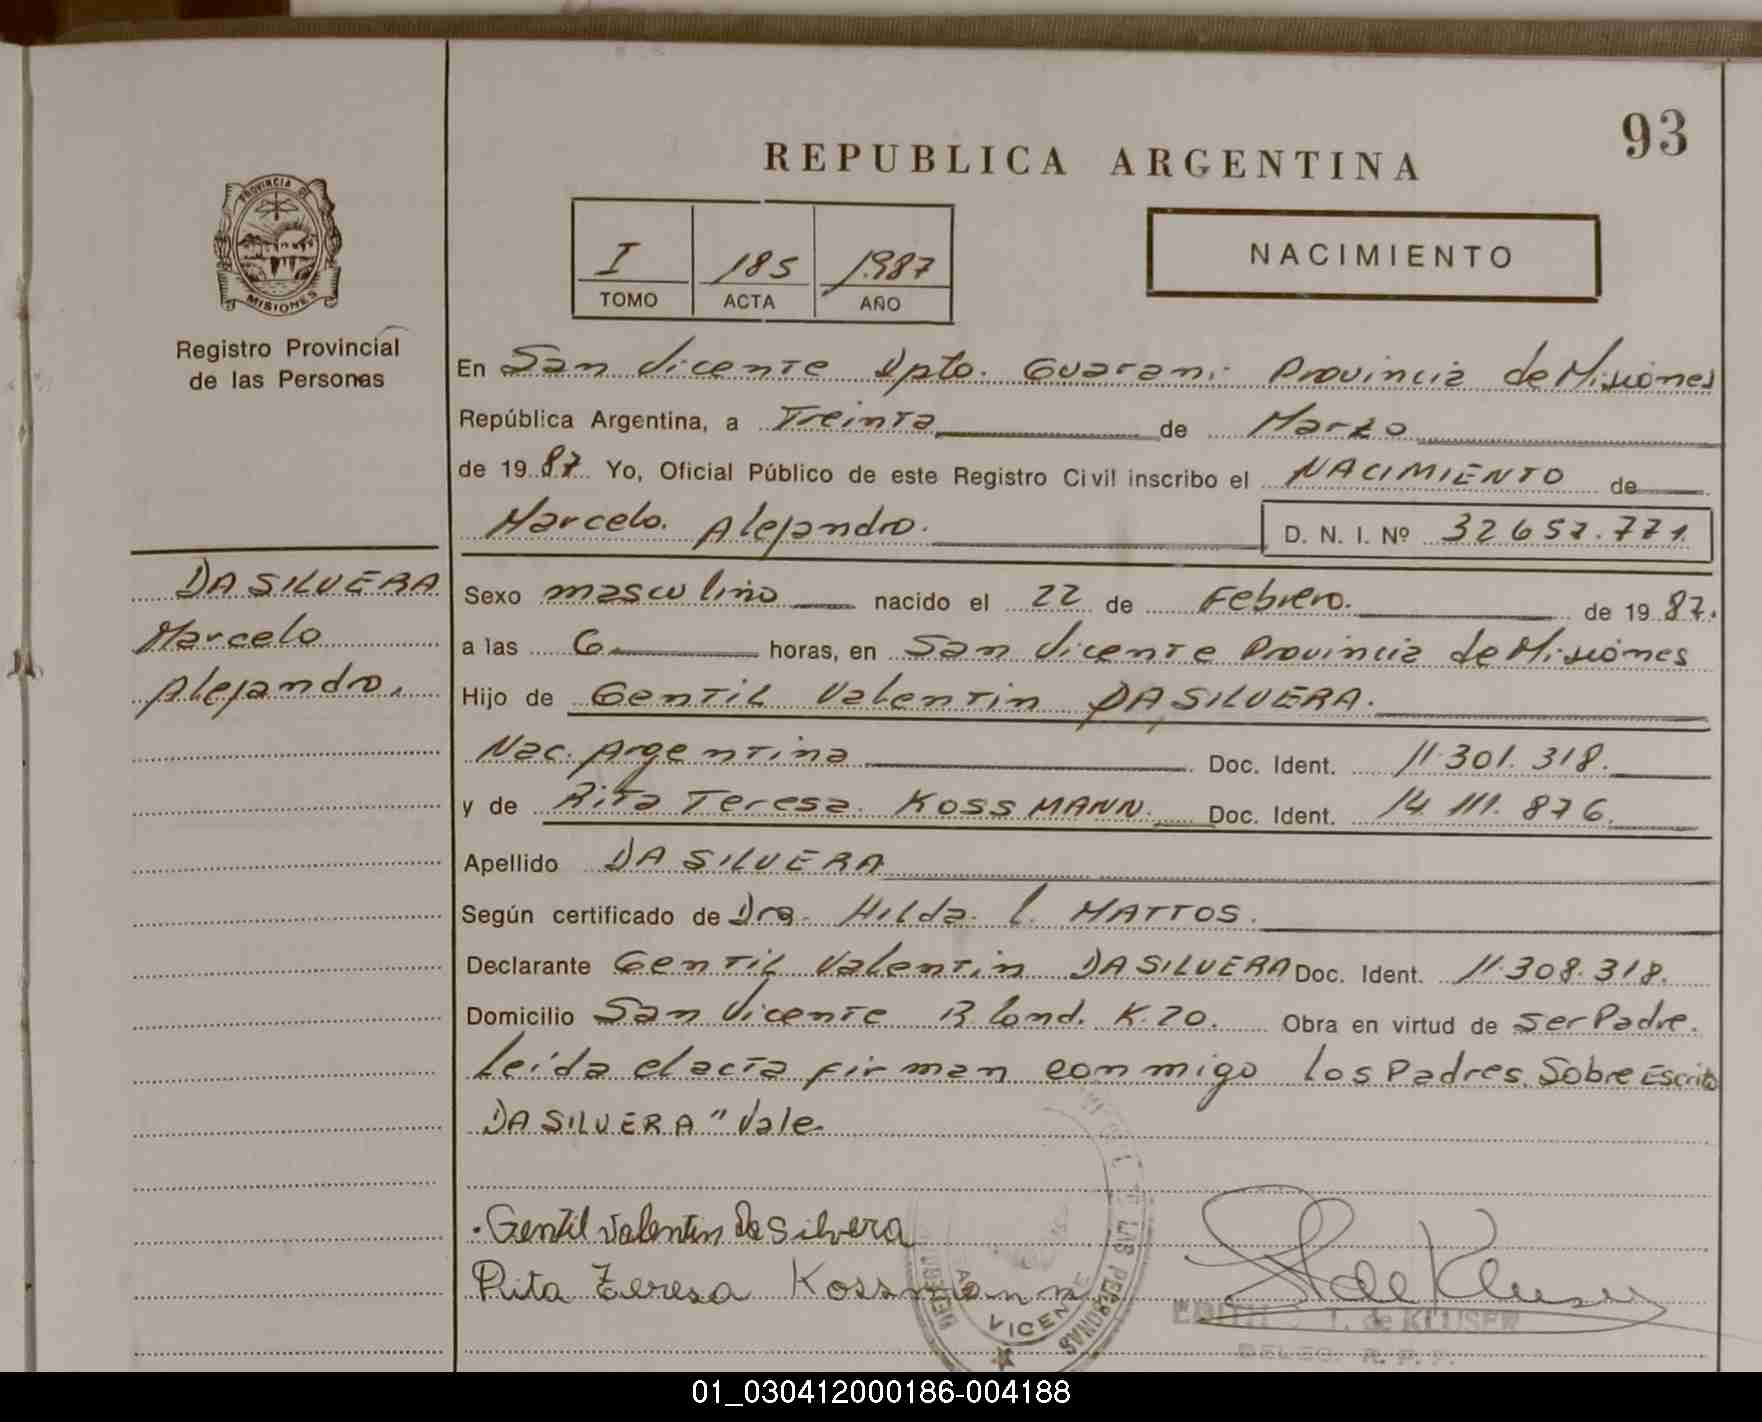 93
REPUBLICA ARGENTINA
PROVINCIA DE
MISIONES
I 185 1987
TOMO ACTA AÑO
NACIMIENTO
Registro Provincial
de las Personas
En San Vicente Dpto. Guarani Provincia de Misiones
República Argentina, a Treinta de Marzo
de 1987 Yo, Oficial Público de este Registro Civil inscribo el NACIMIENTO de
Marcelo Alejandro. D. N. I. Nº 32657.771.
DA SILVERA
Marcelo
Alejandro.
Sexo masculino nacido el 22 de Febrero. de 1987.
a las 6 horas, en San Vicente Provincia de Misiones
Hijo de Gentil Valentin DA SILVERA.
Nac. Argentina Doc. Ident. 11.301.318.
y de Rita Teresa KOSSMANN. Doc. Ident. 14.111.876.
Apellido DA SILVERA
Según certificado de Dra. Hilda L. MATTOS.
Declarante Gentil Valentin DA SILVERA Doc. Ident. 11.308.318.
Domicilio San Vicente K.20. Obra en virtud de ser Padre.
Leída el acta firman conmigo los Padres. Sobre Escrito
DA SILVERA" Vale
Gentil Valentin Da Silvera
Rita Teresa Kossmann
VICENTE
PERSONAS
EDITH de KLUSER
DELEG. R. P. P.
01_030412000186-004188